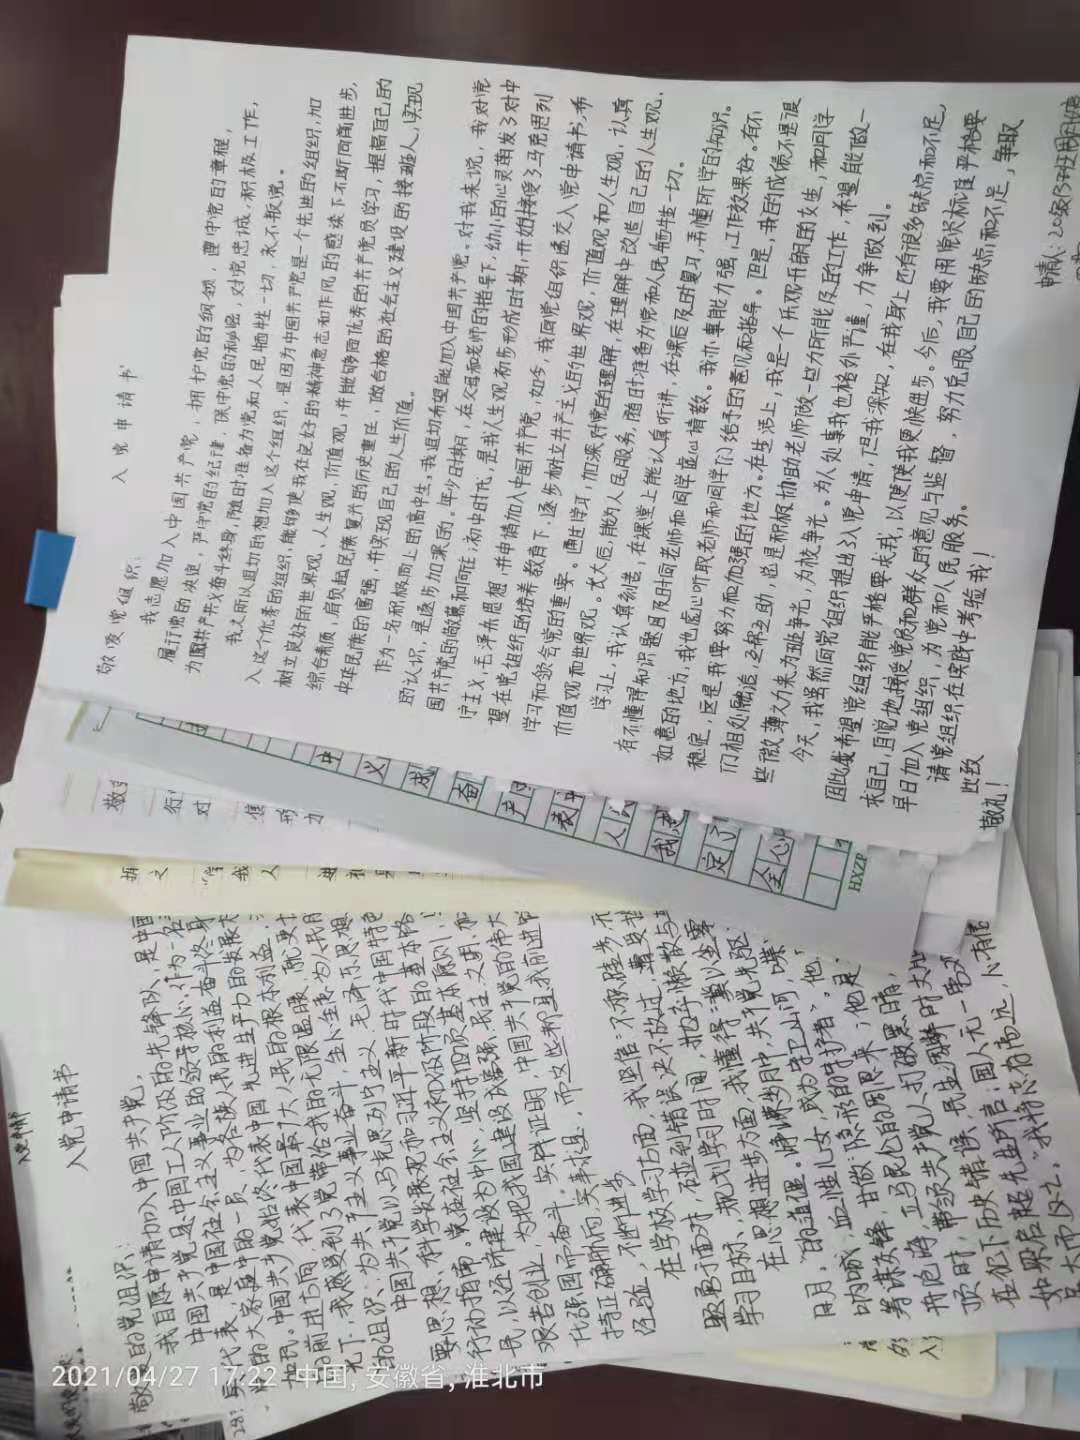 2021/04/27 17:22 中国,安徽省,淮北市
入党申请书
入党申请书
敬爱的党组织:
我自愿申请加入中国共产党。
中国共产党是中国工人阶级的先锋队,是中国
代表,是中国社会主义事业的领导核心。作为一名
的大家庭中的一员,为各族人民的利益奋斗终身
中国共产党始终代表中国先进生产力的发展
的前进方向,代表中国最广大人民的根本利益,
光下,我感受到了党带给我的无限温暖,就更
的组织,为共产主义事业奋斗,全心全意为人民
中国共产党以马克思列宁主义、毛泽东思想
要思想、科学发展观和习近平新时代中国特色
行动指南。党在社会主义初级阶段的基本路
民,以经济建设为中心,坚持四项基本原则,
艰苦创业,为把我国建设成富强、民主、文明、和
化强国而奋斗。实践证明,中国共产党的伟大
持正确航向,实事求是,而这些都是我前进
经验,不断进步。
在学校学习方面,我坚信:不积跬步,无
题勇于面对,碰到错误决不放过,
学习目标、规划学习时间,
在思想进步方面,我懂得:冀以尘雾
日月。"的道理。峥嵘岁月中,共产党先驱
呐喊;血性儿女,成为守卫山河,
筹谋交锋,甘做"隐形的守护者"。他
舟沧海,立马昆仑的周恩来;他是
顶时,带领共产党人打破黑暗,
在犯下历史错误,民生凋敝时大
如梁启超先生所言:国人无一
大而仪之。"我将志存高远,心有
HXZP
入党申请书
敬爱党组织:
我志愿加入中国共产党,拥护党的纲领,遵守党的章程,
履行党的决定,严守党的纪律,保守党的秘密,对党忠诚,积极工作,
为圆共产共义奋斗终身,随时准备为党和人民牺牲一切,永不叛党。
我之所以迫切的想加入这个组织,是因为中国共产党是一个先进的组织,加
入这个优秀的组织,能够使我在良好的精神意志和作风的感染下不断向前进步,
树立良好的世界观、人生观、价值观,并能够向优秀的共产党员学习,提高自己的
综合素质,肩负起民族复兴的历史重任,做合格的社会主义建设的接班人,实现
中华民族的富强,并实现自己的人生价值。
作为一名积极向上的高中生,我迫切希望能加入中国共产党。对我来说,我对党
的认识,是逐步加深的。年少时期,在父母和老师的指导下,幼小的心灵萌发了对中
国共产党的敬慕和向往;初中时代,是我人生观初步形成时期,开始接受了马克思列
宁主义,毛泽东思想,并申请加入中国共产党,如今,我向党组织递交入党申请书,希
望在党组织的培养教育下,逐步树立共产主义的世界观,价值观和人生观,认真
学习和领会党的重要。通过学习,加深对党的理解,在理解中改造自己的人生观、
价值观和世界观。长大后,能为人民服务,随时准备为党和人民牺牲一切。
学习上,我认真刻苦,在课堂上能认真听讲,在课后及时复习,弄懂所学的知识。
有不懂得知识题目及时向老师和同学虚心请教。我办事能力强,工作效果好。有不
如意的地方,我也虚心听取老师和同学们给予的意见和指导。但是,我的成绩不是很
稳定,这是我要努力和加强的地方。在生活上,我是一个乐观开朗的女生,和同学
们相处融洽,互帮互助,总是积极协助老师做一些力所能及的工作,希望能做一
些微薄之力来为班争光,为校争光。为人处事我也格外严谨,力争做到。
今天,我虽然向党组织提出了入党申请,但我深知,在我身上还有很多缺点和不足,
因此我希望党组织能严格要求我,以便使我更快进步。今后,我要用党员标准严格要
求自己,自觉地接受党员和群众的意见与监督,努力克服自己的缺点和不足,争取
早日加入党组织,为党和人民服务。
请党组织在实践中考验我!
此致
敬礼!
申请人:20级13班